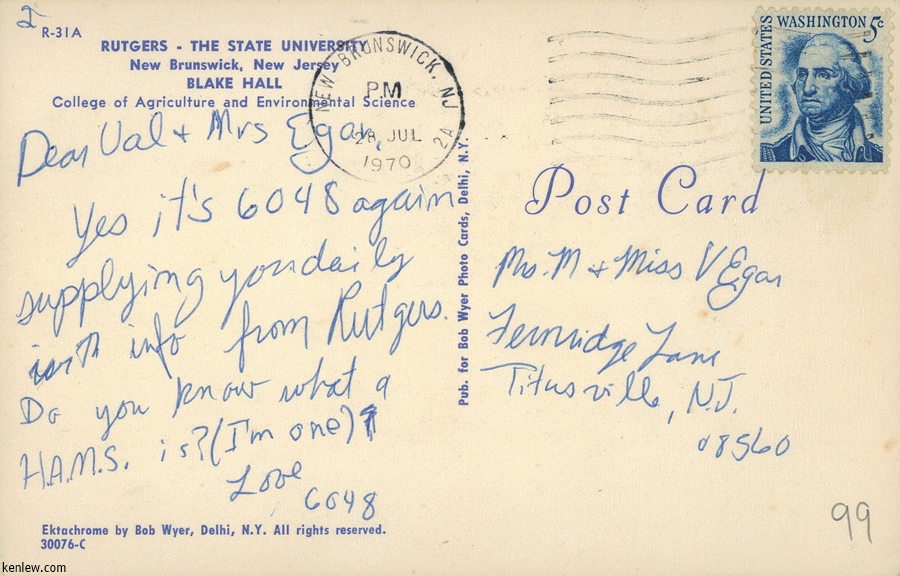 2
R-31A
RUTGERS - THE STATE UNIVERSITY
New Brunswick, New Jersey
BLAKE HALL
College of Agriculture and Environmental Science
NEW BRUNSWICK, NJ
PM
28 JUL
1970
2A
UNITED STATES
WASHINGTON 5c
Dear Val + Mrs Egar,
Yes it's 6048 again
supplying you daily
with info from Rutgers.
Do you know what a
H.A.M.S. is? (I'm one)
Love
6048
Ektachrome by Bob Wyer, Delhi, N.Y. All rights reserved.
30076-C
Pub. for Bob Wyer Photo Cards, Delhi, N.Y.
Post Card
Mrs. M + Miss V Egar
Fernridge Lane
Titusville, N.J.
08560
99
kenlew.com